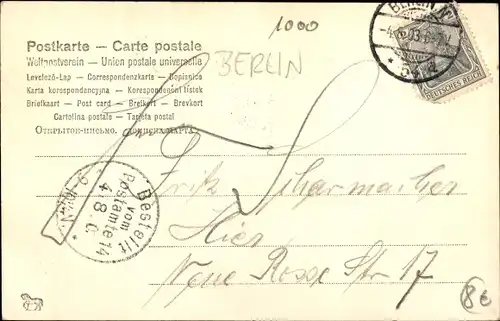 1000
Postkarte – Carte postale
Weltpostverein – Union postale universelle
Levelező-Lap – Correspondenzkarte – Dopisnica
Karta korespondencyjna – Korespondenční listek
Briefkaart – Post card – Brefkort – Brevkort
Cartolina postale – Tarjeta postal
BERLIN
BERLIN
DEUTSCHES REICH
Bestellt
vom
Postamte 14
4. 8.
Erik Scharmacher
Hier
Neue Ross Str 17
8€